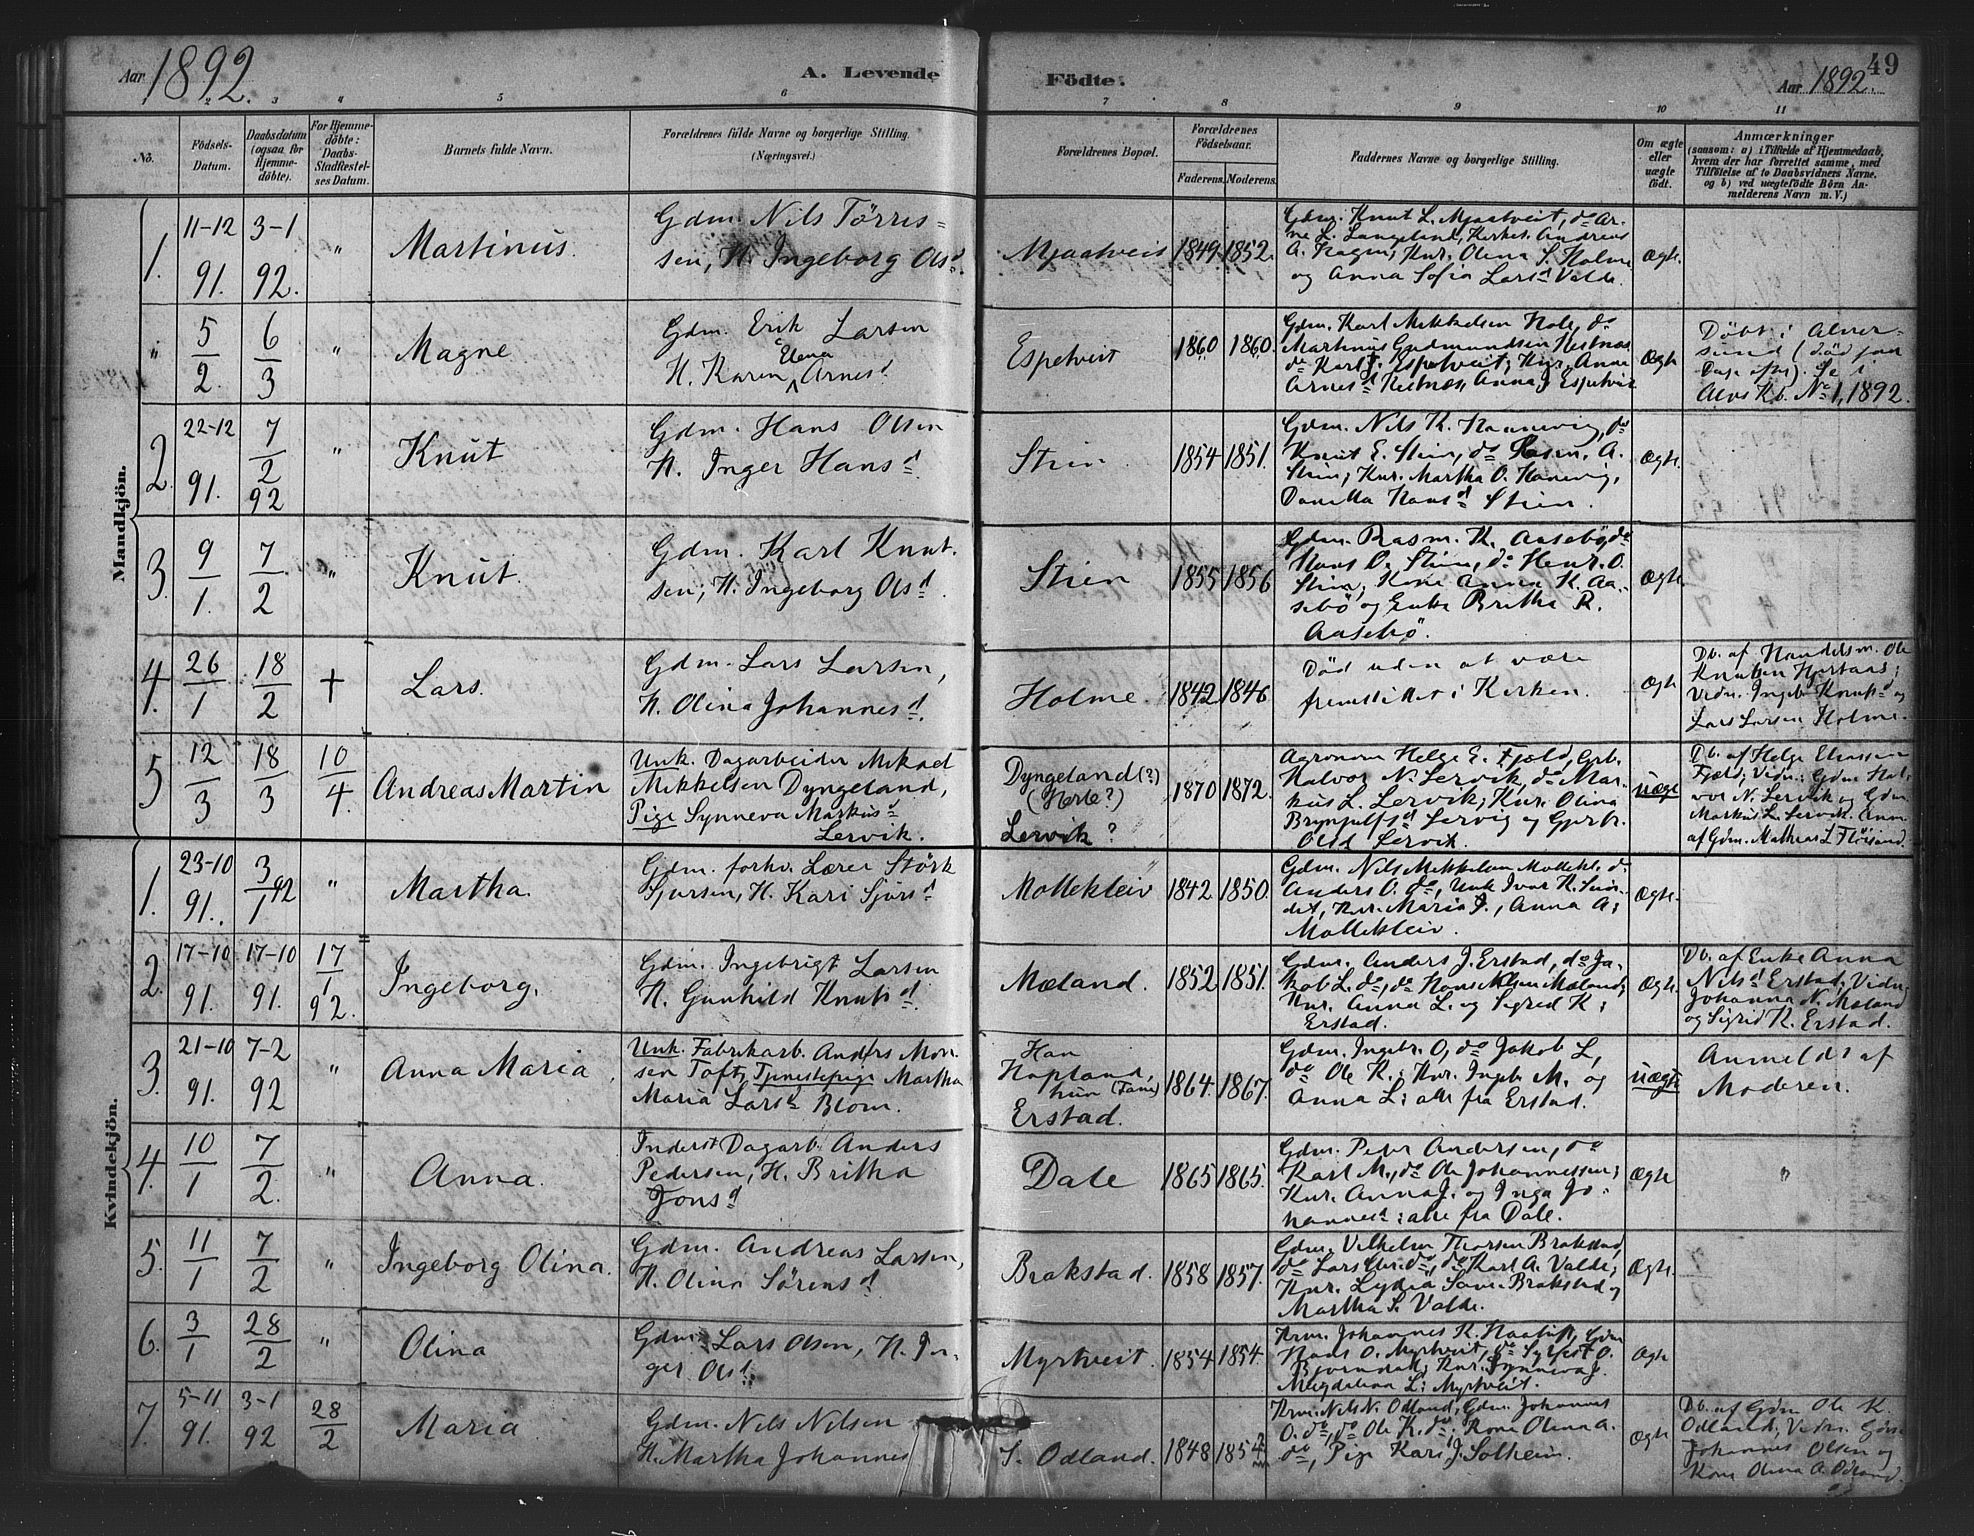 Aar 1892.
A. Levende
Födte.
49
Aar 1892.
1 2 3 4 5 6 7 8 9 10 11
No.
Födsels-
Datum.
Daabsdatum
(ogsaa for
Hjemme-
döbte).
For Hjemme-
döbte:
Daabs-
Stadfæstel-
ses Datum.
Barnets fulde Navn.
Forældrenes fulde Navne og borgerlige Stilling.
(Næringsvei.)
Forældrenes Bopæl.
Forældrenes
Födselsaar.
Faderens. Moderens.
Faddernes Navne og borgerlige Stilling.
Om ægte
eller
uægte
födt.
Anmærkninger
(saasom: a) i Tilfælde af Hjemmedaab,
hvem der har forrettet samme, med
Tilföielse af to Daabsvidners Navne.
og b) ved uægtefödte Börn An-
melderens Navn m. V.)
Mandkjön.
1. 11-12 91. 3-1 92. " Martinus.
Gdm. Nils Törris-
sen, H. Ingeborg Olsd.
Mjaatveit 1849 1852.
Gdm. Knut L. Mjaatveit, do Ar-
ne L. Langeland, Kirkes. Andreas
A. Hagen, Kur. Olina S. Holme
og Anna Sofia Larsd Valde.
Ægte.
" 5/2. 6/3 " Magne.
Gdm. Erik Larsen
H. Karen Elena Arnesd.
Espetveit 1860 1860.
Gdm. Karl Mikkelsen Hole, do
Martinus Gudmundsen Hestnæs
do Karl J. Espetveit; Kur. Anna
Arnesd Hestnæs, Anna J. Espetveit
Ægte
Döbt i Alver-
sund (död faa
Dage efter). Se i
Alvs Kb. No 1, 1892.
2. 22-12 91. 7/2 92 " Knut
Gdm. Hans Olsen
H. Inger Hansd
Stien. 1854 1851.
Gdm. Nils K. Hannevig, do
Knut E. Stien, do Rasm. A.
Stien; Kur. Martha O. Hanevig,
Danilla Hansd Stien.
Ægte.
3. 9/1. 7/2 " Knut.
Gdm. Karl Knut-
sen, H. Ingeborg Olsd.
Stien 1855 1856
Gdm. Rasm. K. Aasebö, do
Hans O. Stien, do Henr. O.
Stien; Kone Anna K. Aa-
sebö og Enke Britha R.
Aasebö.
Ægte.
4. 26/1 18/2 + Lars.
Gdm. Lars Larsen,
H. Olina Johannesd.
Holme. 1842 1846
Död uden at være
fremstillet i Kirken.
Ægte
Db. af Handelsm. Ole
Knutsen Hjertaas;
Vidn. Ingeb. Knutsd og
Lars Larsen Holme.
5 12/3 18/3 10/4 Andreas Martin
Unk. Dagarbeider Mikael
Mikkelsen Dyngeland,
Pige Synneva Markusd
Lervik.
Dyngeland (?)
(Herle?)
Lervik?
1870 1872.
Agronom Helge E. Fjeld, Grb.
Halvor N. Lervik, do Mar-
kus L. Lervik; Kur. Olina
Brynjulfsd Lervig og Gjert
Olsd Lervik.
uægte
Db. af Helge Eliassen
Fjeld; Vidn.: Gdm Hal-
vor N. Lervik og Gdm.
Markus L. Lervik. Anm.
af Gdm. Mathias L.
Kvindekjön.
1. 23-10 91. 3/1 92 " Martha.
Gdm. forhv. Lærer Störk
Sjursen, H. Kari Sjursd
Mollekleiv 1842 1850.
Gdm. Nils Mikkelsen Mollekl. do
Anders O. do, Unk Ivar K. Sun-
det, Kur. Maria J., Anna A;
Mollekleiv.
Ægte.
2. 17-10 91. 17-10 91. 17/1 92. Ingeborg.
Gdm. Ingebrigt Larsen
H. Gunhild Knutsd.
Mæland. 1852 1851.
Gdm. Anders J. Erstad, do Ja-
kob L. do, do Hans Olsen Mæland;
Kur. Anna L. og Sigrid K;
Erstad.
Ægte.
Db. af Enke Anna
Nilsd Erstad, Vidn.
Johanna N. Mæland
og Sigrid K. Erstad.
3. 21-10 91. 7-2 92 " Anna Maria
Unk. Fabrikarb. Anders Mon-
sen Toft, Tjenestepige Martha
Maria Larsd Blom.
Han
Hopland,
hun (Tann)
Erstad.
1864. 1867.
Gdm. Ingebr. O, do Jakob L,
do Ole K.; Kur. Ingeb. M. og
Anna L; alle fra Erstad.
uægte
Anmeldt af
Moderen.
4. 10/1 7/2. " Anna.
Inderst Dagarb. Anders
Pedersen, H. Britha
Jonsd
Dale 1865 1865.
Gdm. Peder Andersen, do
Karl M., do Ole Johannessen;
Kur. Anna J. og Inga Jo-
hannesd; alle fra Dale.
Ægte "
5. 11/1 7/2 " Ingeborg Olina.
Gdm. Andreas Larsen,
H. Olina Sörensd
Brakstad. 1858 1857.
Gdm. Vilhelm Thorsen Brakstad,
do Lars Chr. do, do Karl A. Valde;
Kur. Lydia Brakstad og
Martha S. Valde.
Ægte.
6. 3/1 28/2 " Olina
Gdm. Lars Olsen, H. In-
ger Olsd.
Myrtveit. 1854 1854.
Krm. Johannes K. Gdm
Hans O. Myrtveit, do Sylfest O.
Bjørndal; Kur. Synneva J.
Magdalena L; Myrtveit.
Ægte
7. 5-11 91. 3-1 92 28/2 Maria.
Gdm. Nils Nilsen
H. Martha Johannes
S. Odland. 1848 1854
Krm. Nils N. Odland, Gdm. Johannes
O. do, do Ole K. do; Kone Olina A.
do, Pige Kari J. Solheim.
Ægte
Db. af Gdm Ole K.
Odland; Vidn. Gdm
Johannes Olsen og
Kone Olina A. Odland.